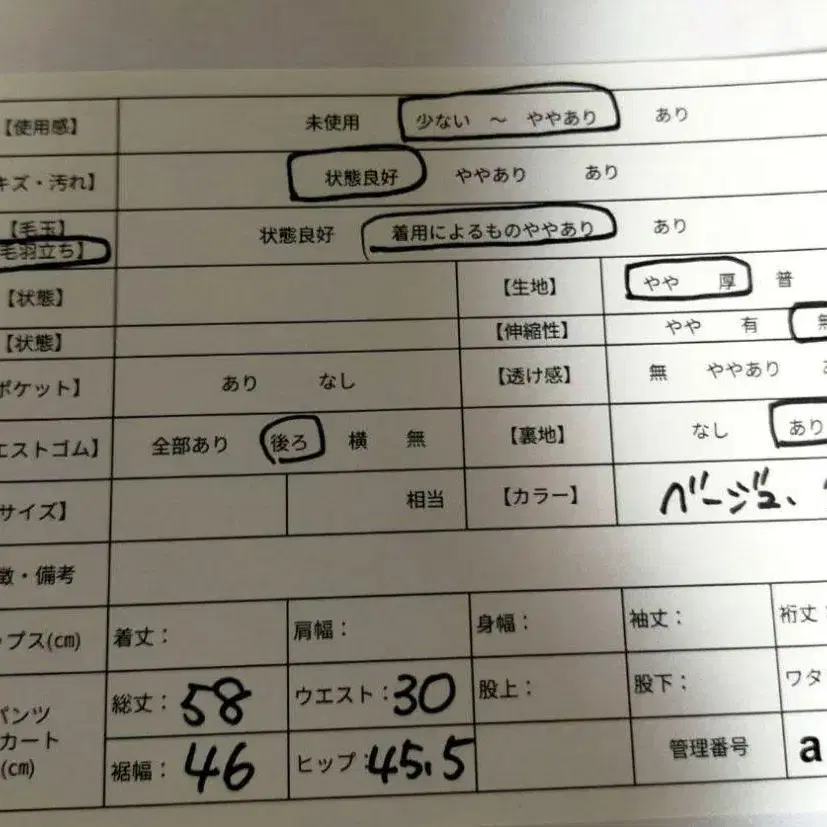 【使用感】 未使用 少ない ～ ややあり あり
キズ・汚れ】 状態良好 ややあり あり
【毛玉】
毛羽立ち】 状態良好 着用によるものややあり あり
【状態】 【生地】 やや 厚 普
【状態】 【伸縮性】 やや 有 無
ポケット】 あり なし 【透け感】 無 ややあり
エストゴム】 全部あり 後ろ 横 無 【裏地】 なし あり
サイズ】 相当 【カラー】 ベージュ、
徴・備考
ップス(cm) 着丈： 肩幅： 身幅： 袖丈： 裄丈：
パンツ
カート
(cm)
総丈：58 ウエスト：30 股上： 股下： ワタ
裾幅：46 ヒップ：45.5 管理番号 a